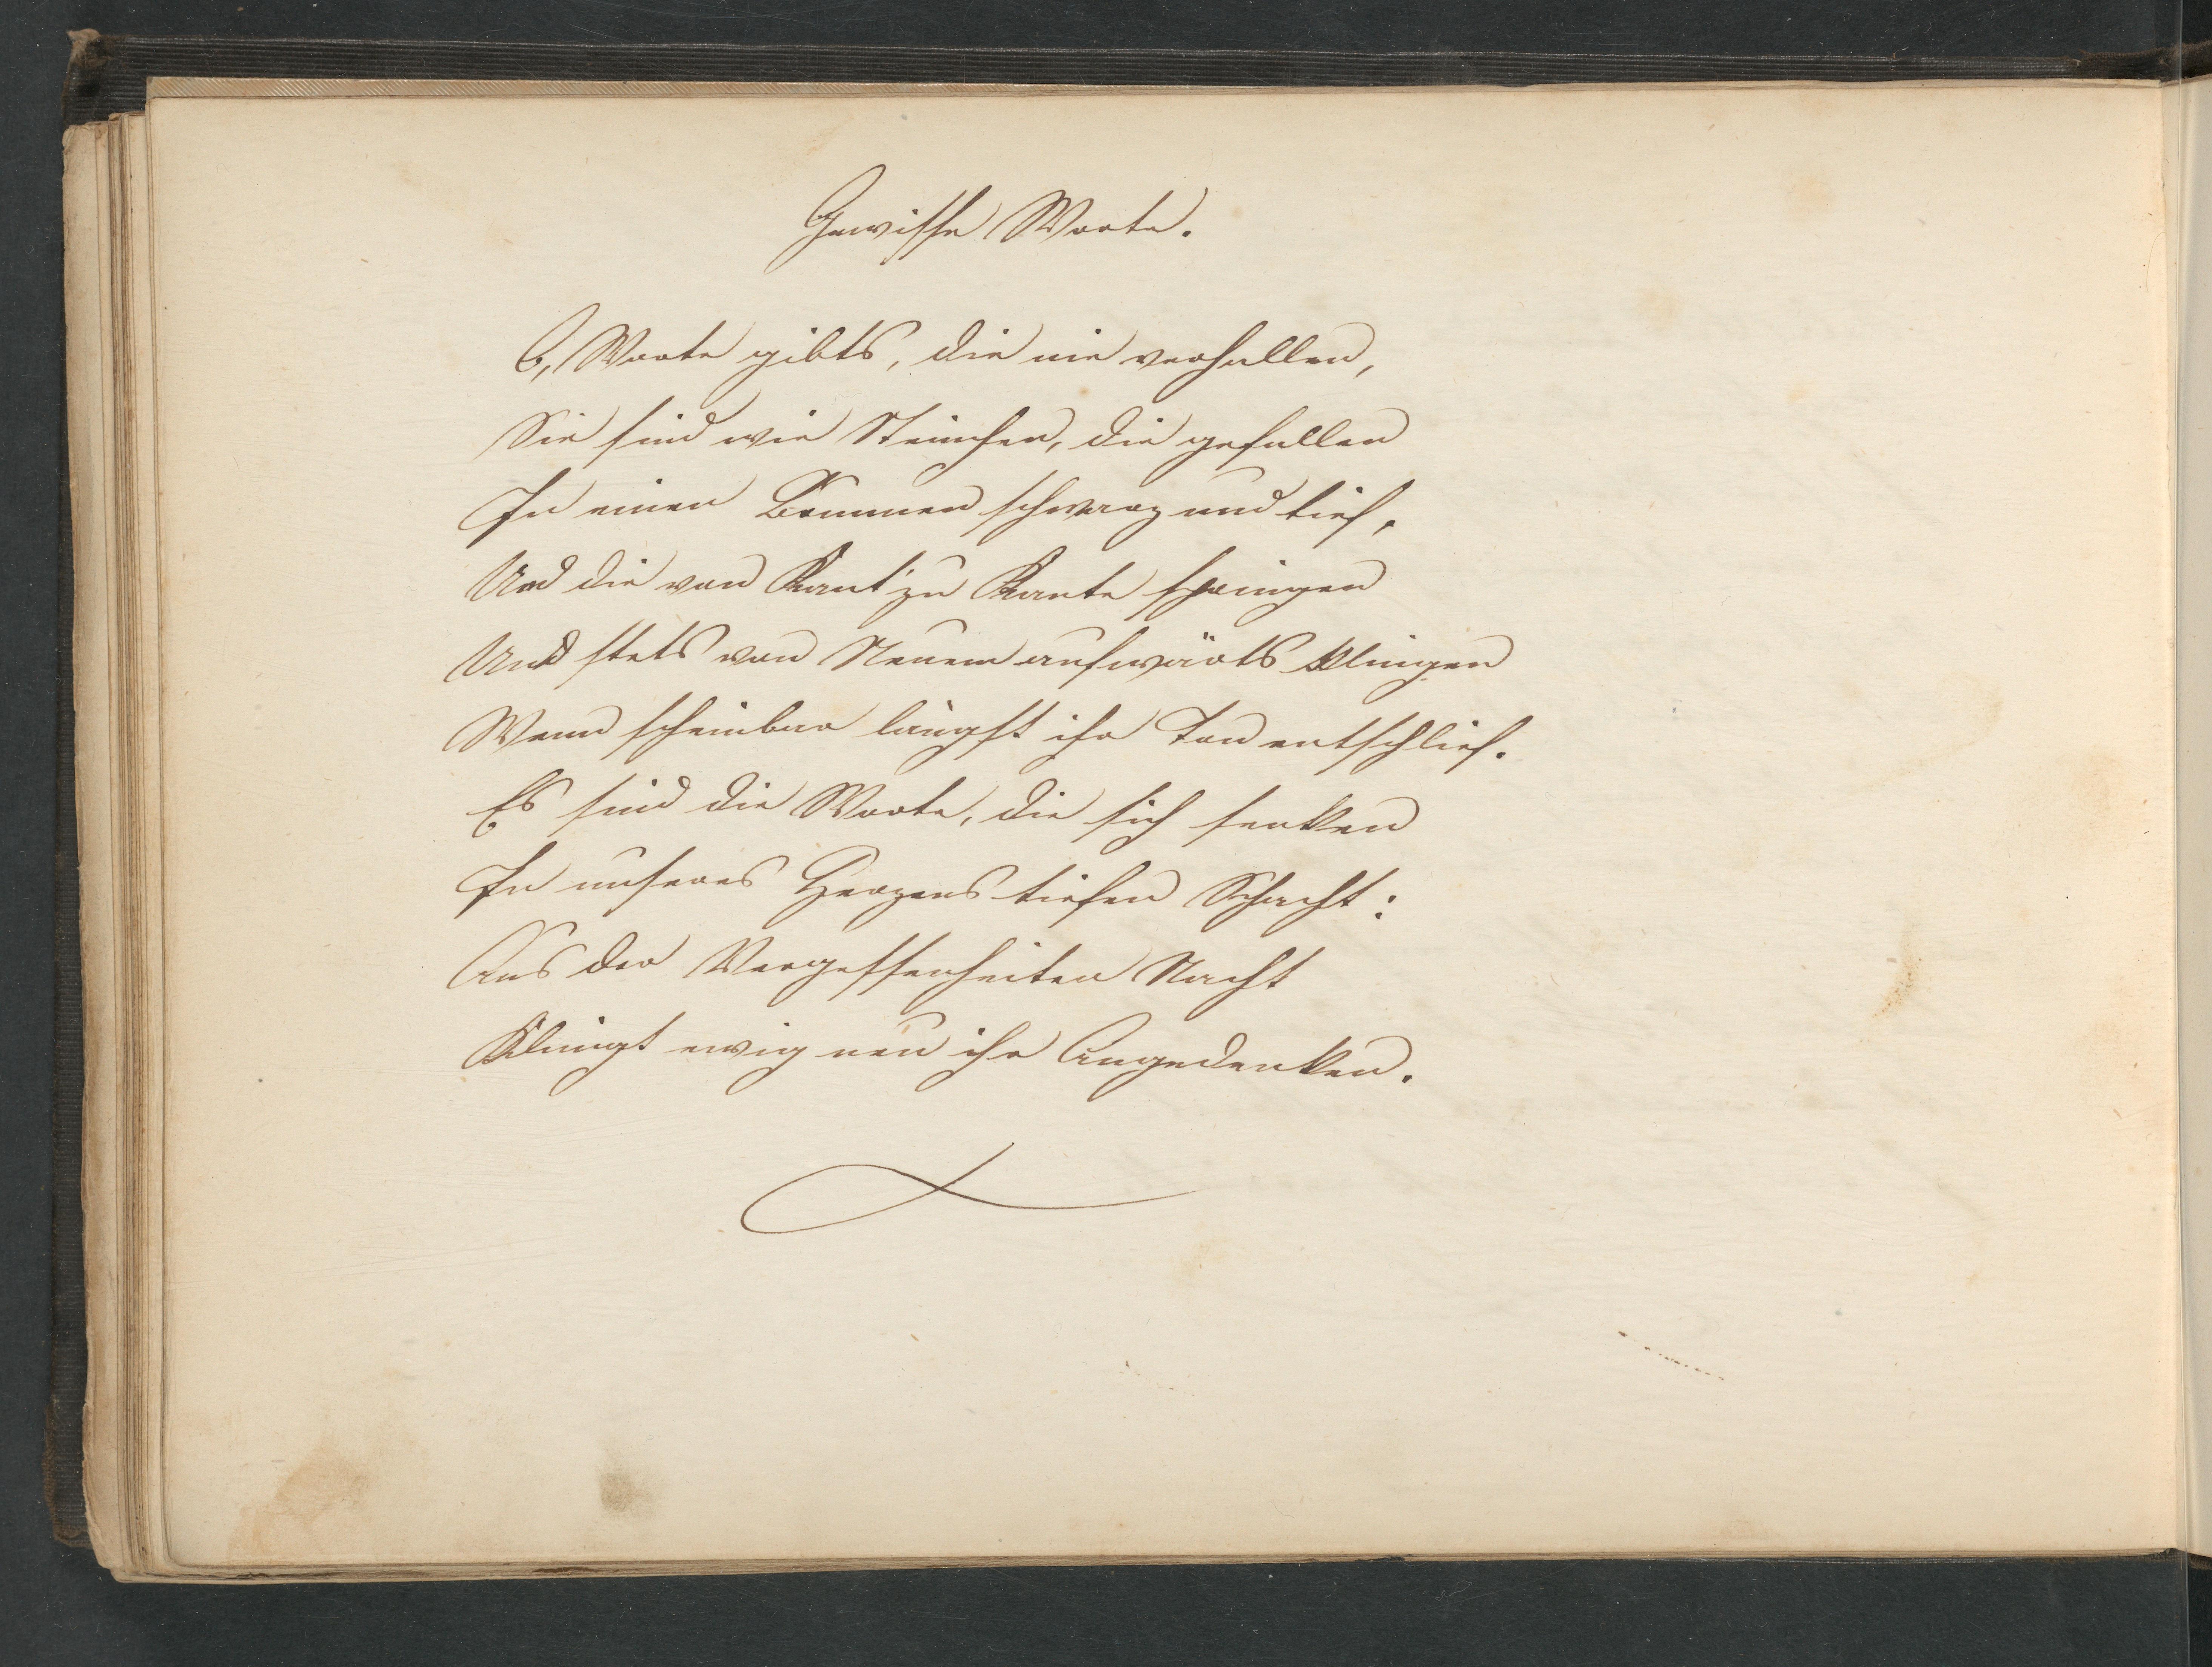 Gewisse Worte.
O, Worte gibts, die nie verhallen,
Sie sind wie Steinchen, die gefallen
In einen Brunnen schwarz und tief,
Und die von Kant' zu Kante springen
Und stets von Neuem aufwärts klingen
Wenn scheinbar längst ihr Ton entschlief.
Es sind die Worte, die sich senken
In unseres Herzens tiefen Schacht:
Aus der Vergessenheiten Nacht
Klingt ewig neu ihr Angedenken.